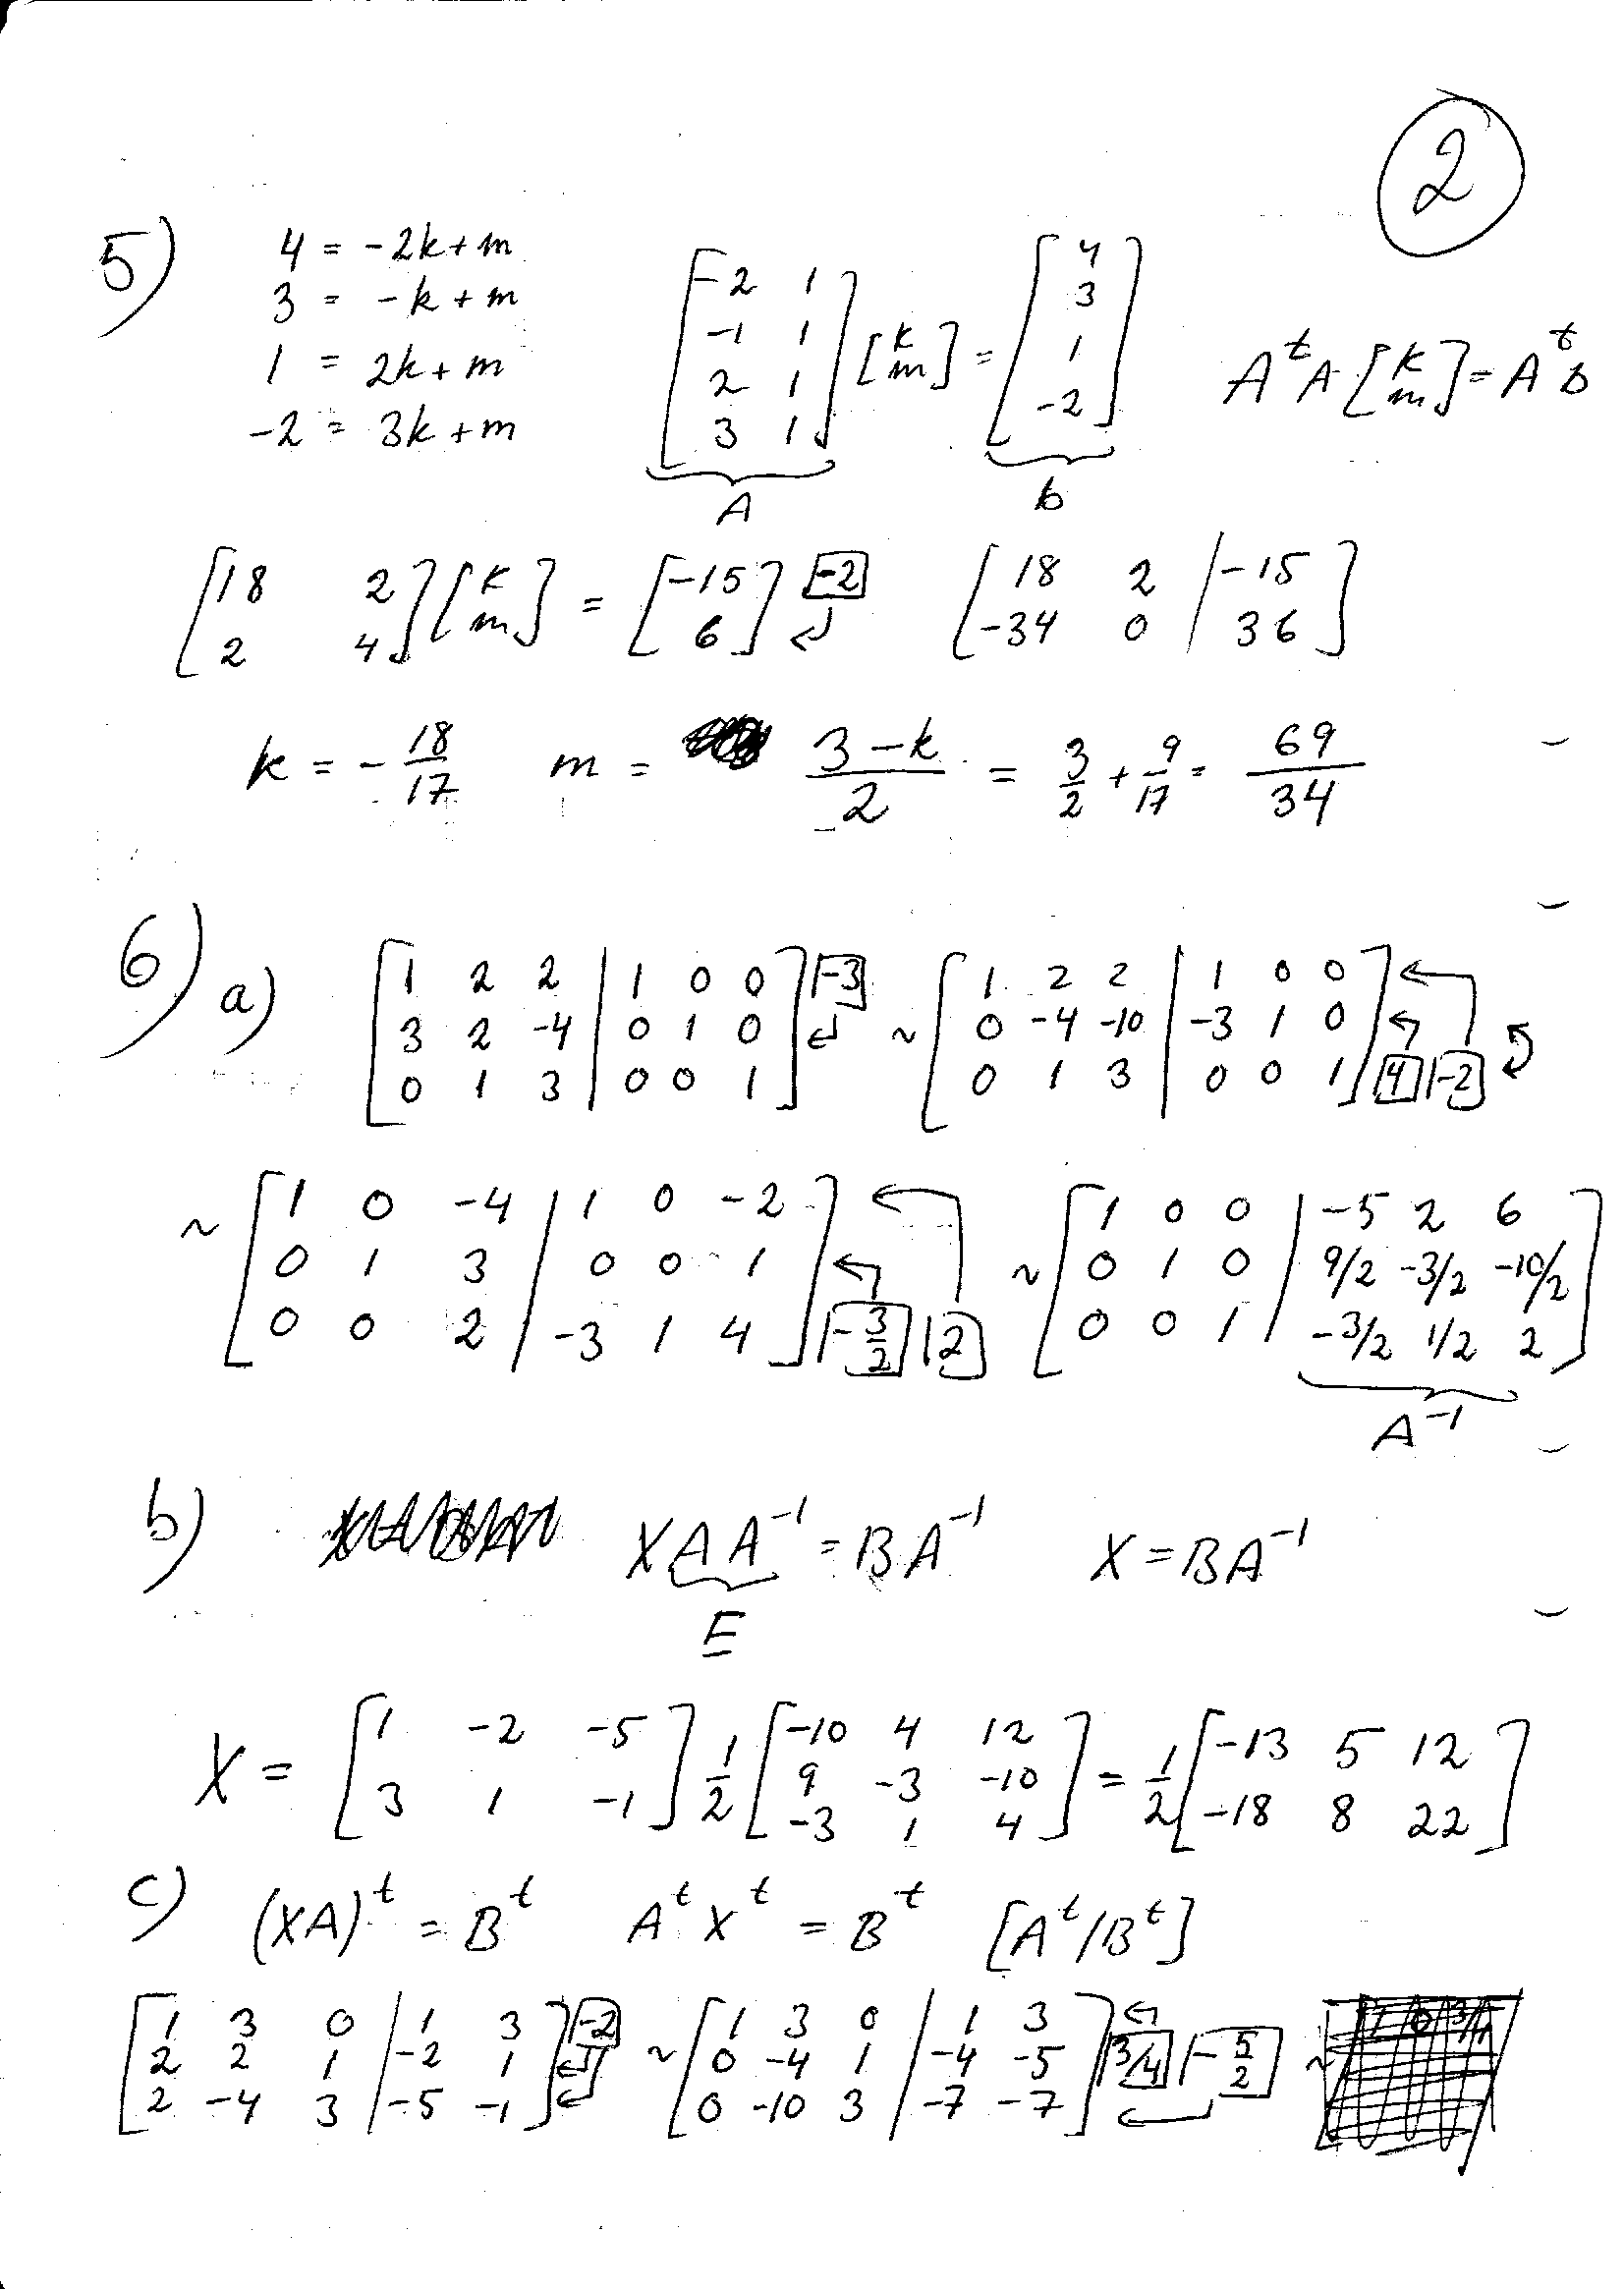 2
5) 4 = -2k+m
3 = -k+m
1 = 2k+m
-2 = 3k+m
[-2 1; -1 1; 2 1; 3 1] [k; m] = [4; 3; 1; -2] AᵗA [k; m] = Aᵗb
A b
[18 2; 2 4] [k; m] = [-15; 6] -2 [18 2 | -15; -34 0 | 36]
k = - 18/17 m = (3-k)/2 = 3/2 + 9/17 = 69/34
6) a) [1 2 2 | 1 0 0; 3 2 -4 | 0 1 0; 0 1 3 | 0 0 1] -3 ~ [1 2 2 | 1 0 0; 0 -4 -10 | -3 1 0; 0 1 3 | 0 0 1] 4 -2
~ [1 0 -4 | 1 0 -2; 0 1 3 | 0 0 1; 0 0 2 | -3 1 4] -3/2 2 ~ [1 0 0 | -5 2 6; 0 1 0 | 9/2 -3/2 -10/2; 0 0 1 | -3/2 1/2 2]
A⁻¹
b) XAA⁻¹ = BA⁻¹ X = BA⁻¹
E
X = [1 -2 -5; 3 1 -1] 1/2 [-10 4 12; 9 -3 -10; -3 1 4] = 1/2 [-13 5 12; -18 8 22]
c) (XA)ᵗ = Bᵗ AᵗXᵗ = Bᵗ [Aᵗ/Bᵗ]
[1 3 0 | 1 3; 2 2 1 | -2 1; 2 -4 3 | -5 -1] -2 ~ [1 3 0 | 1 3; 0 -4 1 | -4 -5; 0 -10 3 | -7 -7] 3/4 -5/2 ~